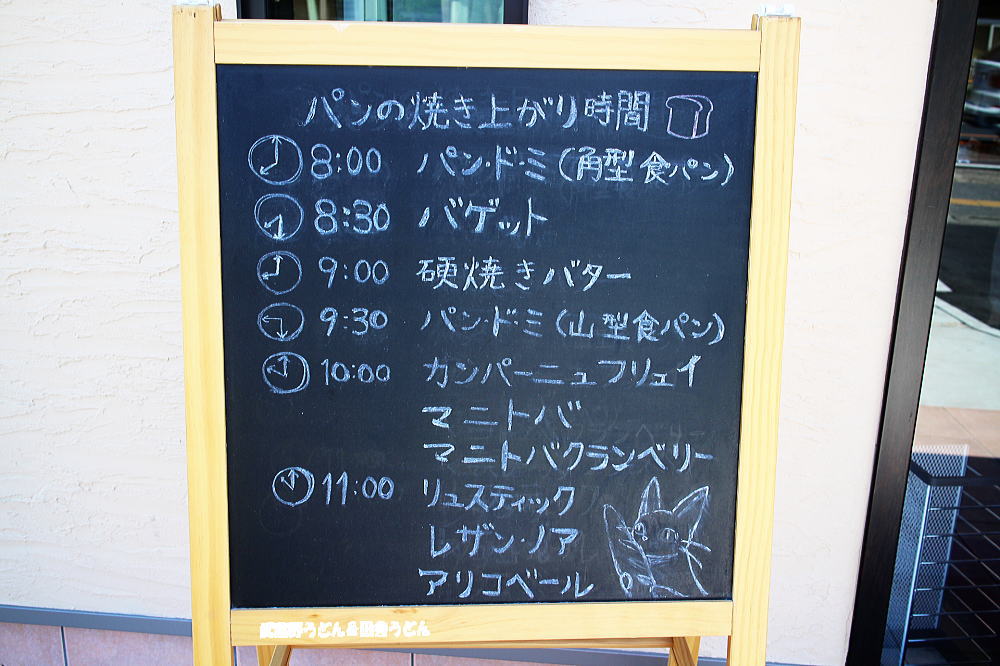 パンの焼き上がり時間
8:00 パン・ド・ミ(角型食パン)
8:30 バゲット
9:00 硬焼きバター
9:30 パン・ド・ミ(山型食パン)
10:00 カンパーニュフリュイ
マニトバ
マニトバクランベリー
11:00 リュスティック
レザン・ノア
アリコベール
武蔵野うどん&田舎うどん